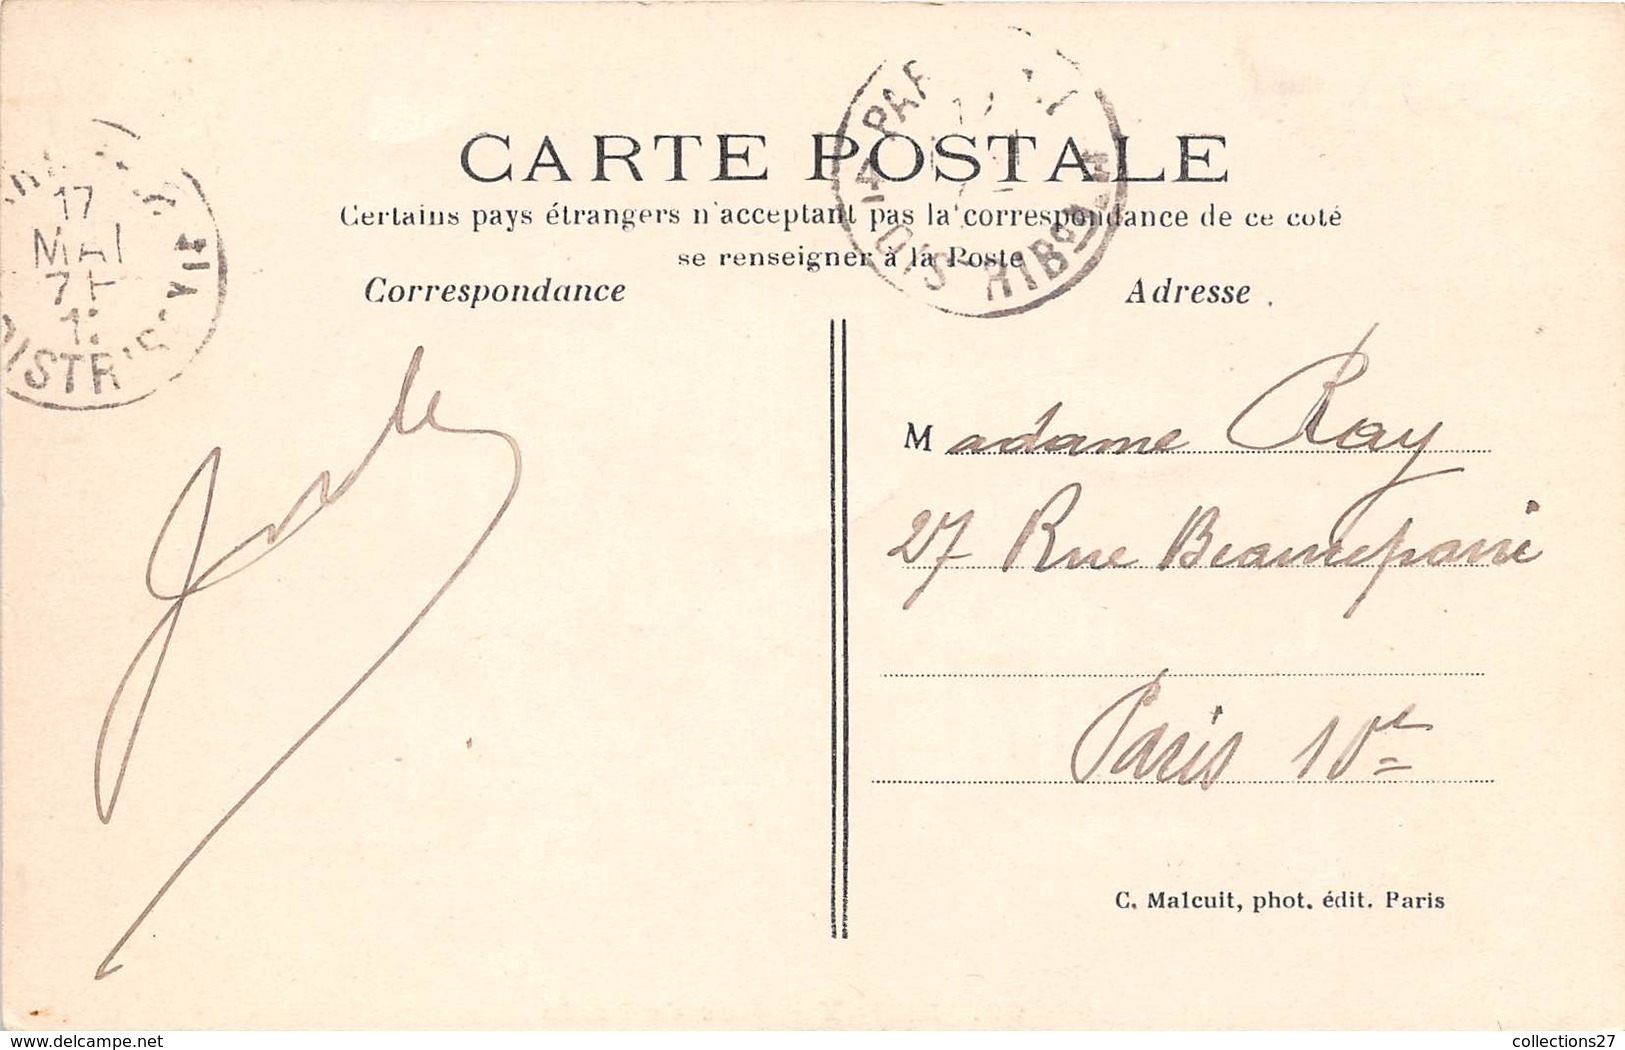 CARTE POSTALE
Certains pays étrangers n'acceptant pas la correspondance de ce coté
se renseigner à la Poste
Correspondance
Adresse
17
MAI
DISTRI
Madame Ray
27 Rue Beaurepaire
Paris 10e
C. Malcuit, phot. édit. Paris
www.delcampe.net
collections27